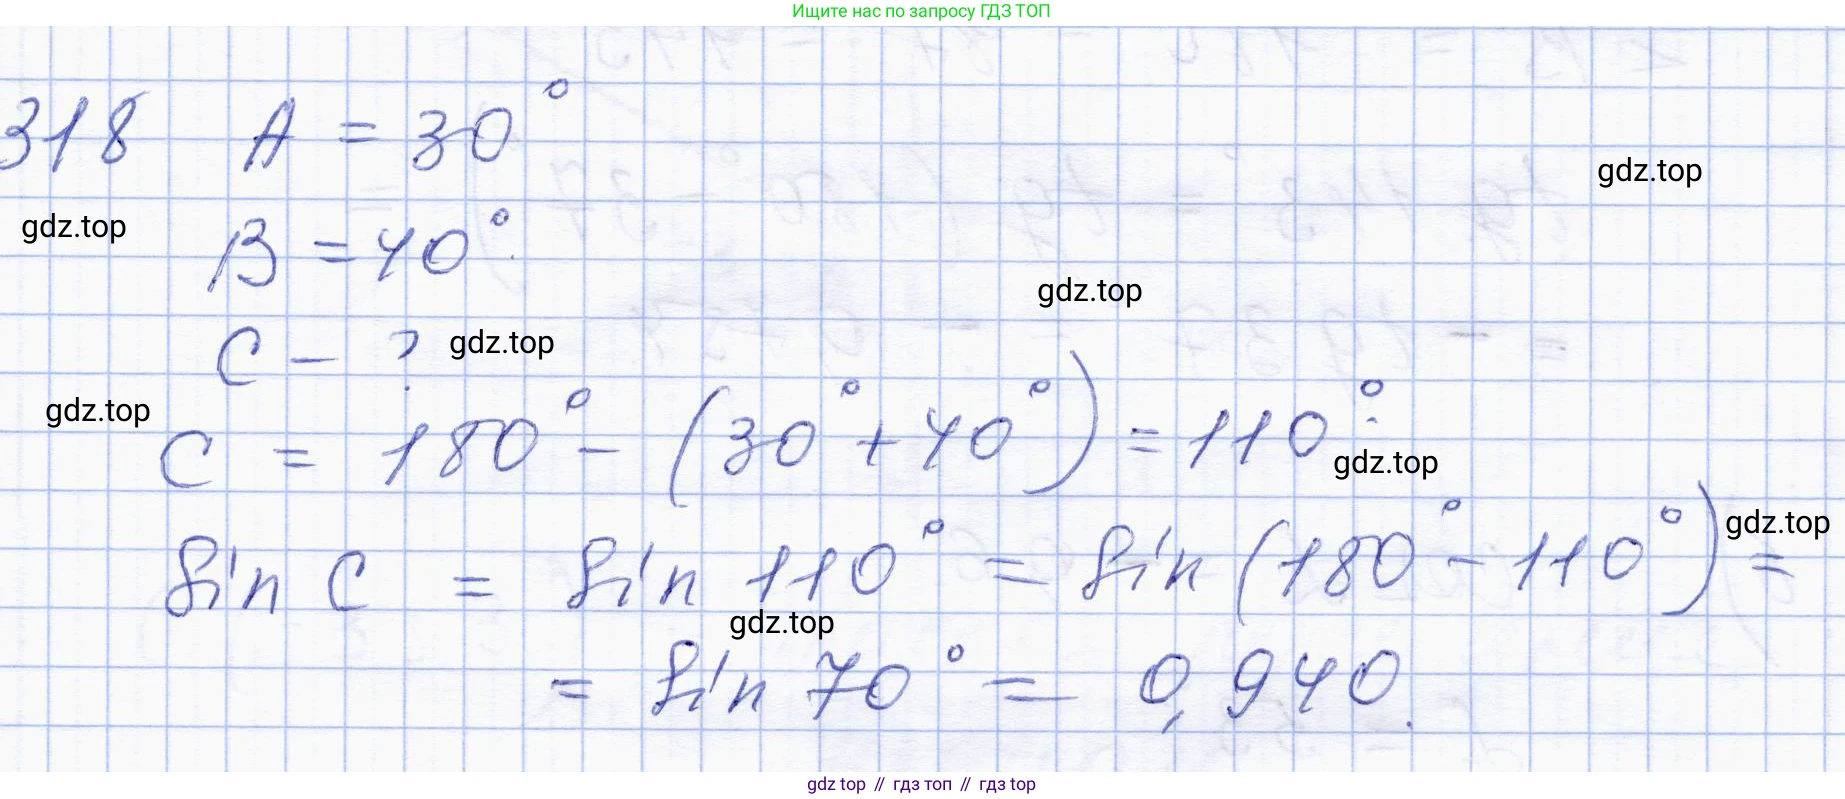 Ищите нас по запросу ГДЗ ТОП
318 A = 30°
gdz.top
gdz.top
B = 40°.
gdz.top
C - ?
gdz.top
gdz.top
C = 180° - (30° + 40°) = 110°.
gdz.top
gdz.top
sin C = sin 110° = sin (180° - 110°) =
gdz.top
= sin 70° = 0,940.
gdz top // гдз топ // гдз top